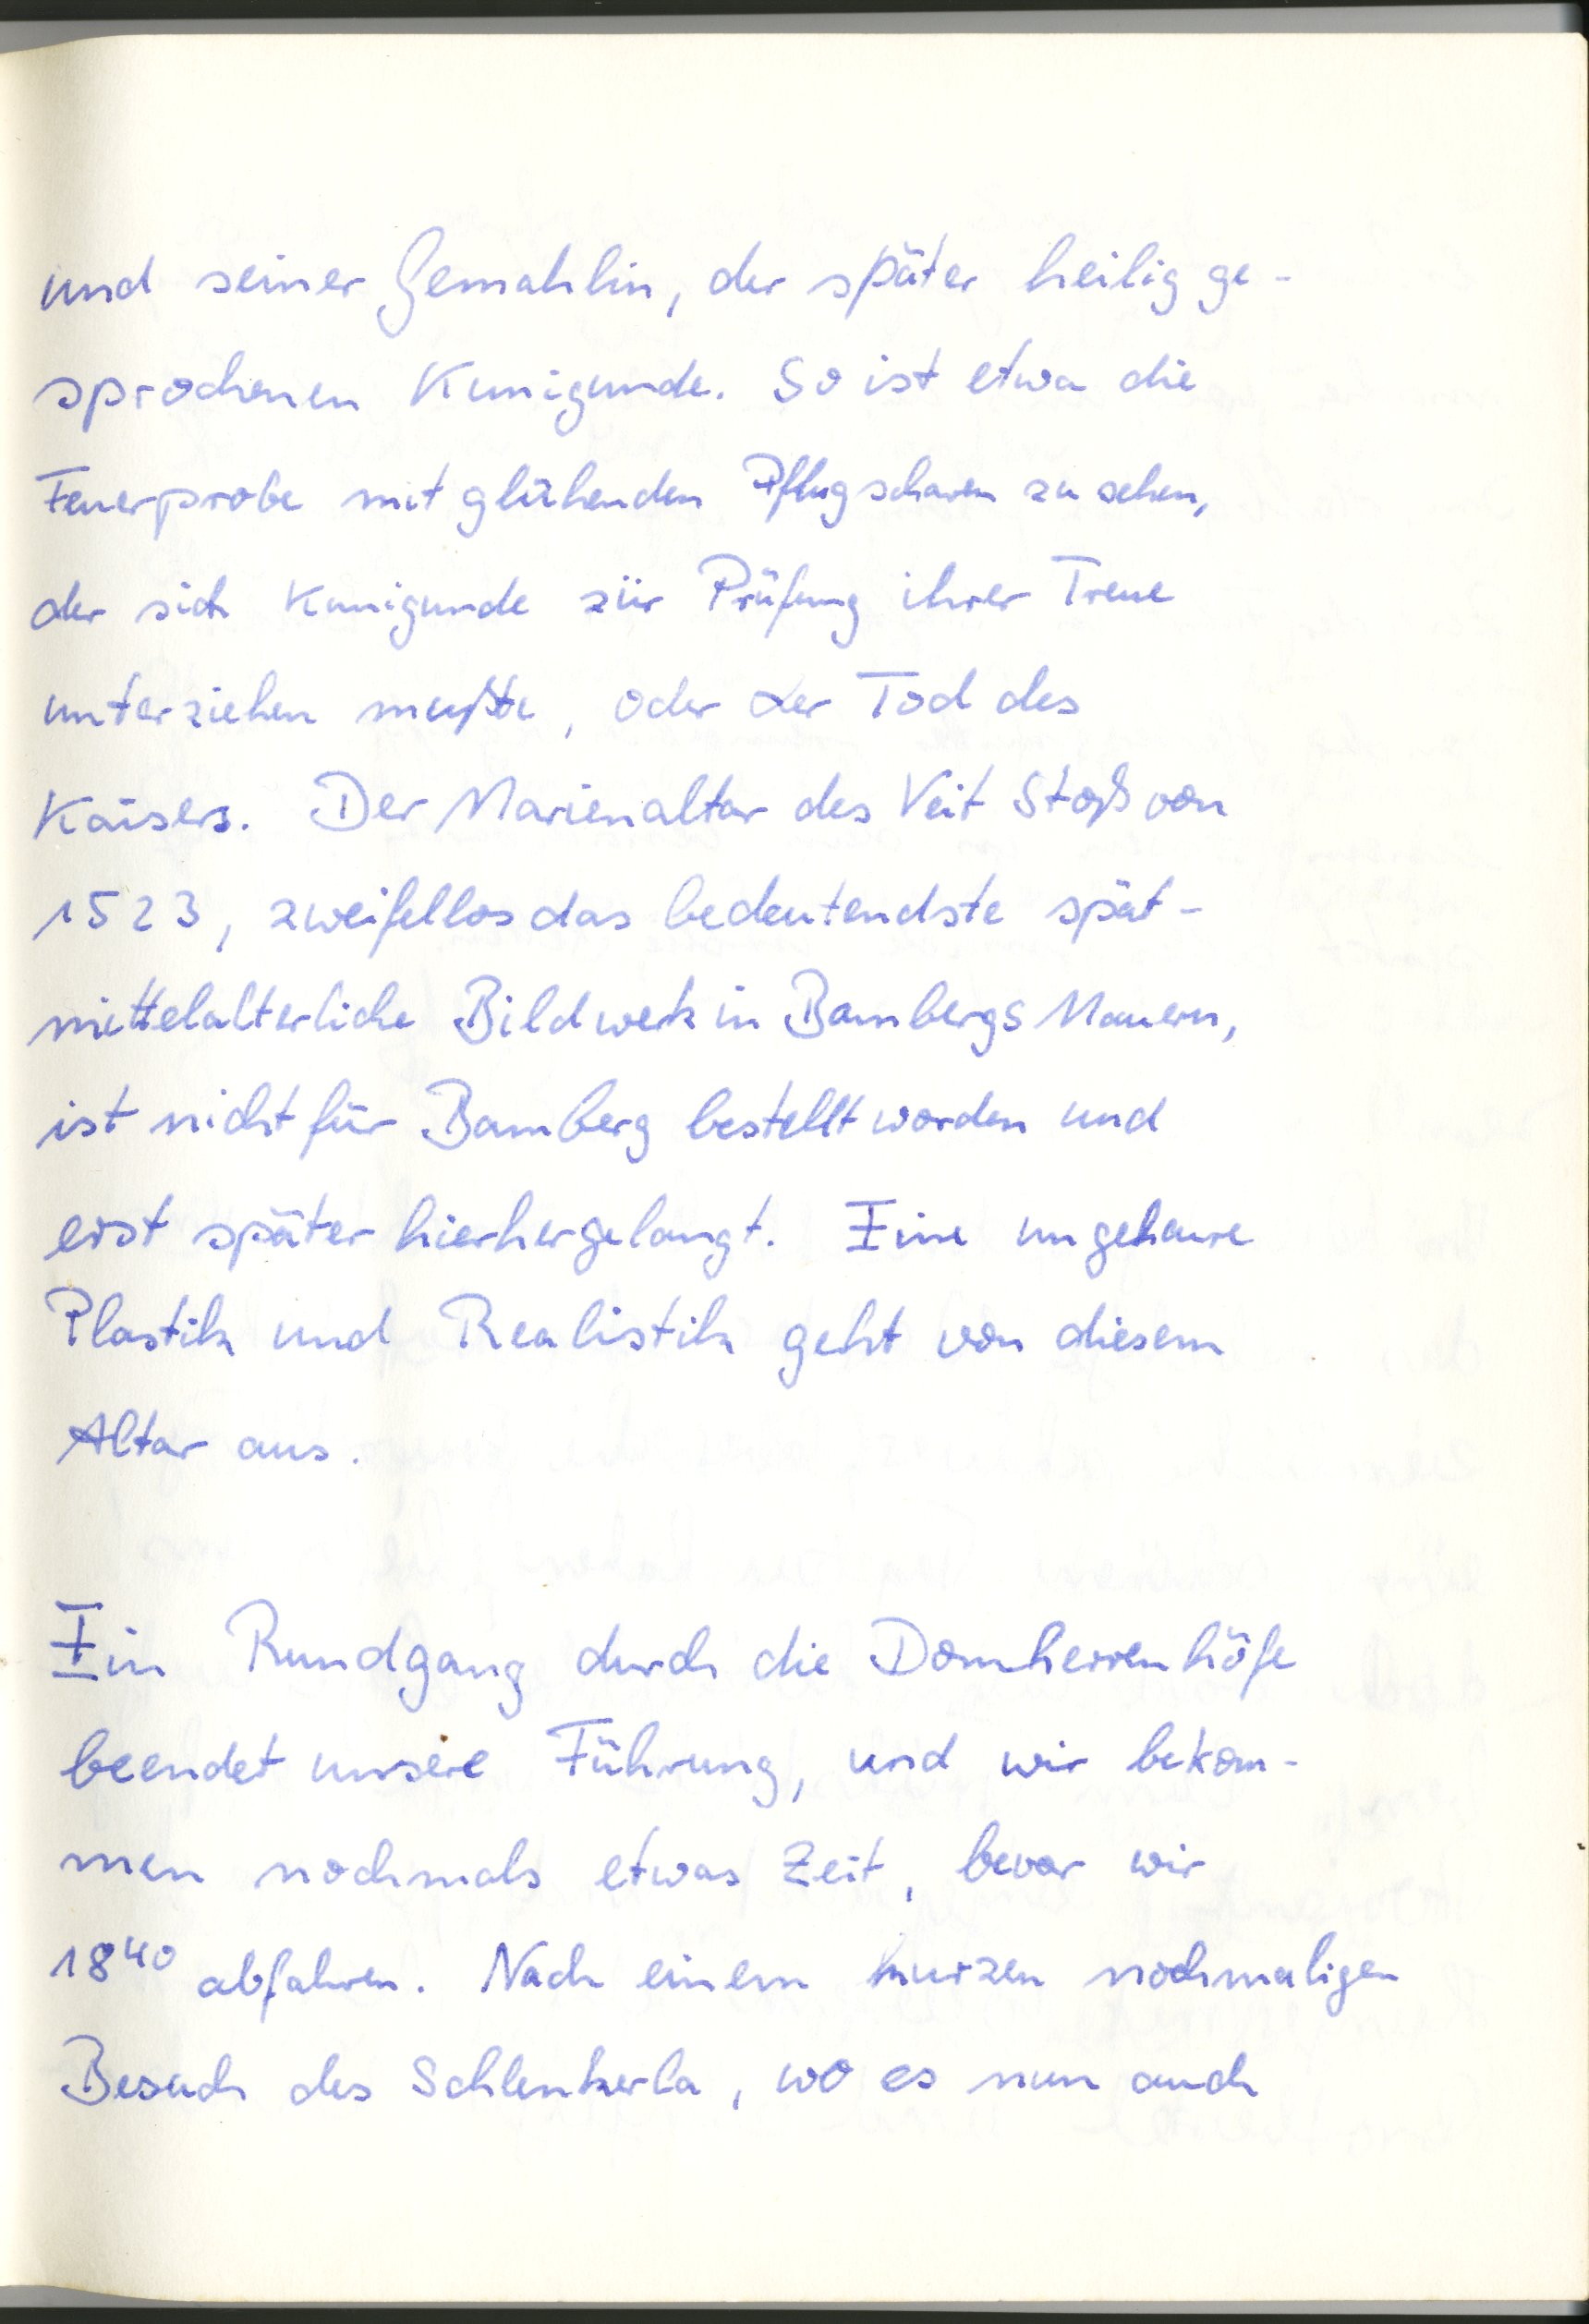 und seiner Gemahlin, der später heilig ge-
sprochenen Kunigunde. So ist etwa die
Feuerprobe mit glühenden Pflugscharen zu sehen,
der sich Kunigunde zür Prüfung ihrer Treue
unterziehen mußte, oder der Tod des
Kaisers. Der Marienaltar des Veit Stoß von
1523, zweifellos das bedeutendste spät-
mittelalterliche Bildwerk in Bambergs Mauern,
ist nicht für Bamberg bestellt worden und
erst später hierhergelangt. Eine ungeheure
Plastik und Realistik geht von diesem
Altar aus.
Ein Rundgang durch die Domherrenhöfe
beendet unsere Führung, und wir bekom-
men nochmals etwas Zeit, bevor wir
18⁴⁰ abfahren. Nach einem kurzen nochmaligen
Besuch des Schlenkerla, wo es nun auch